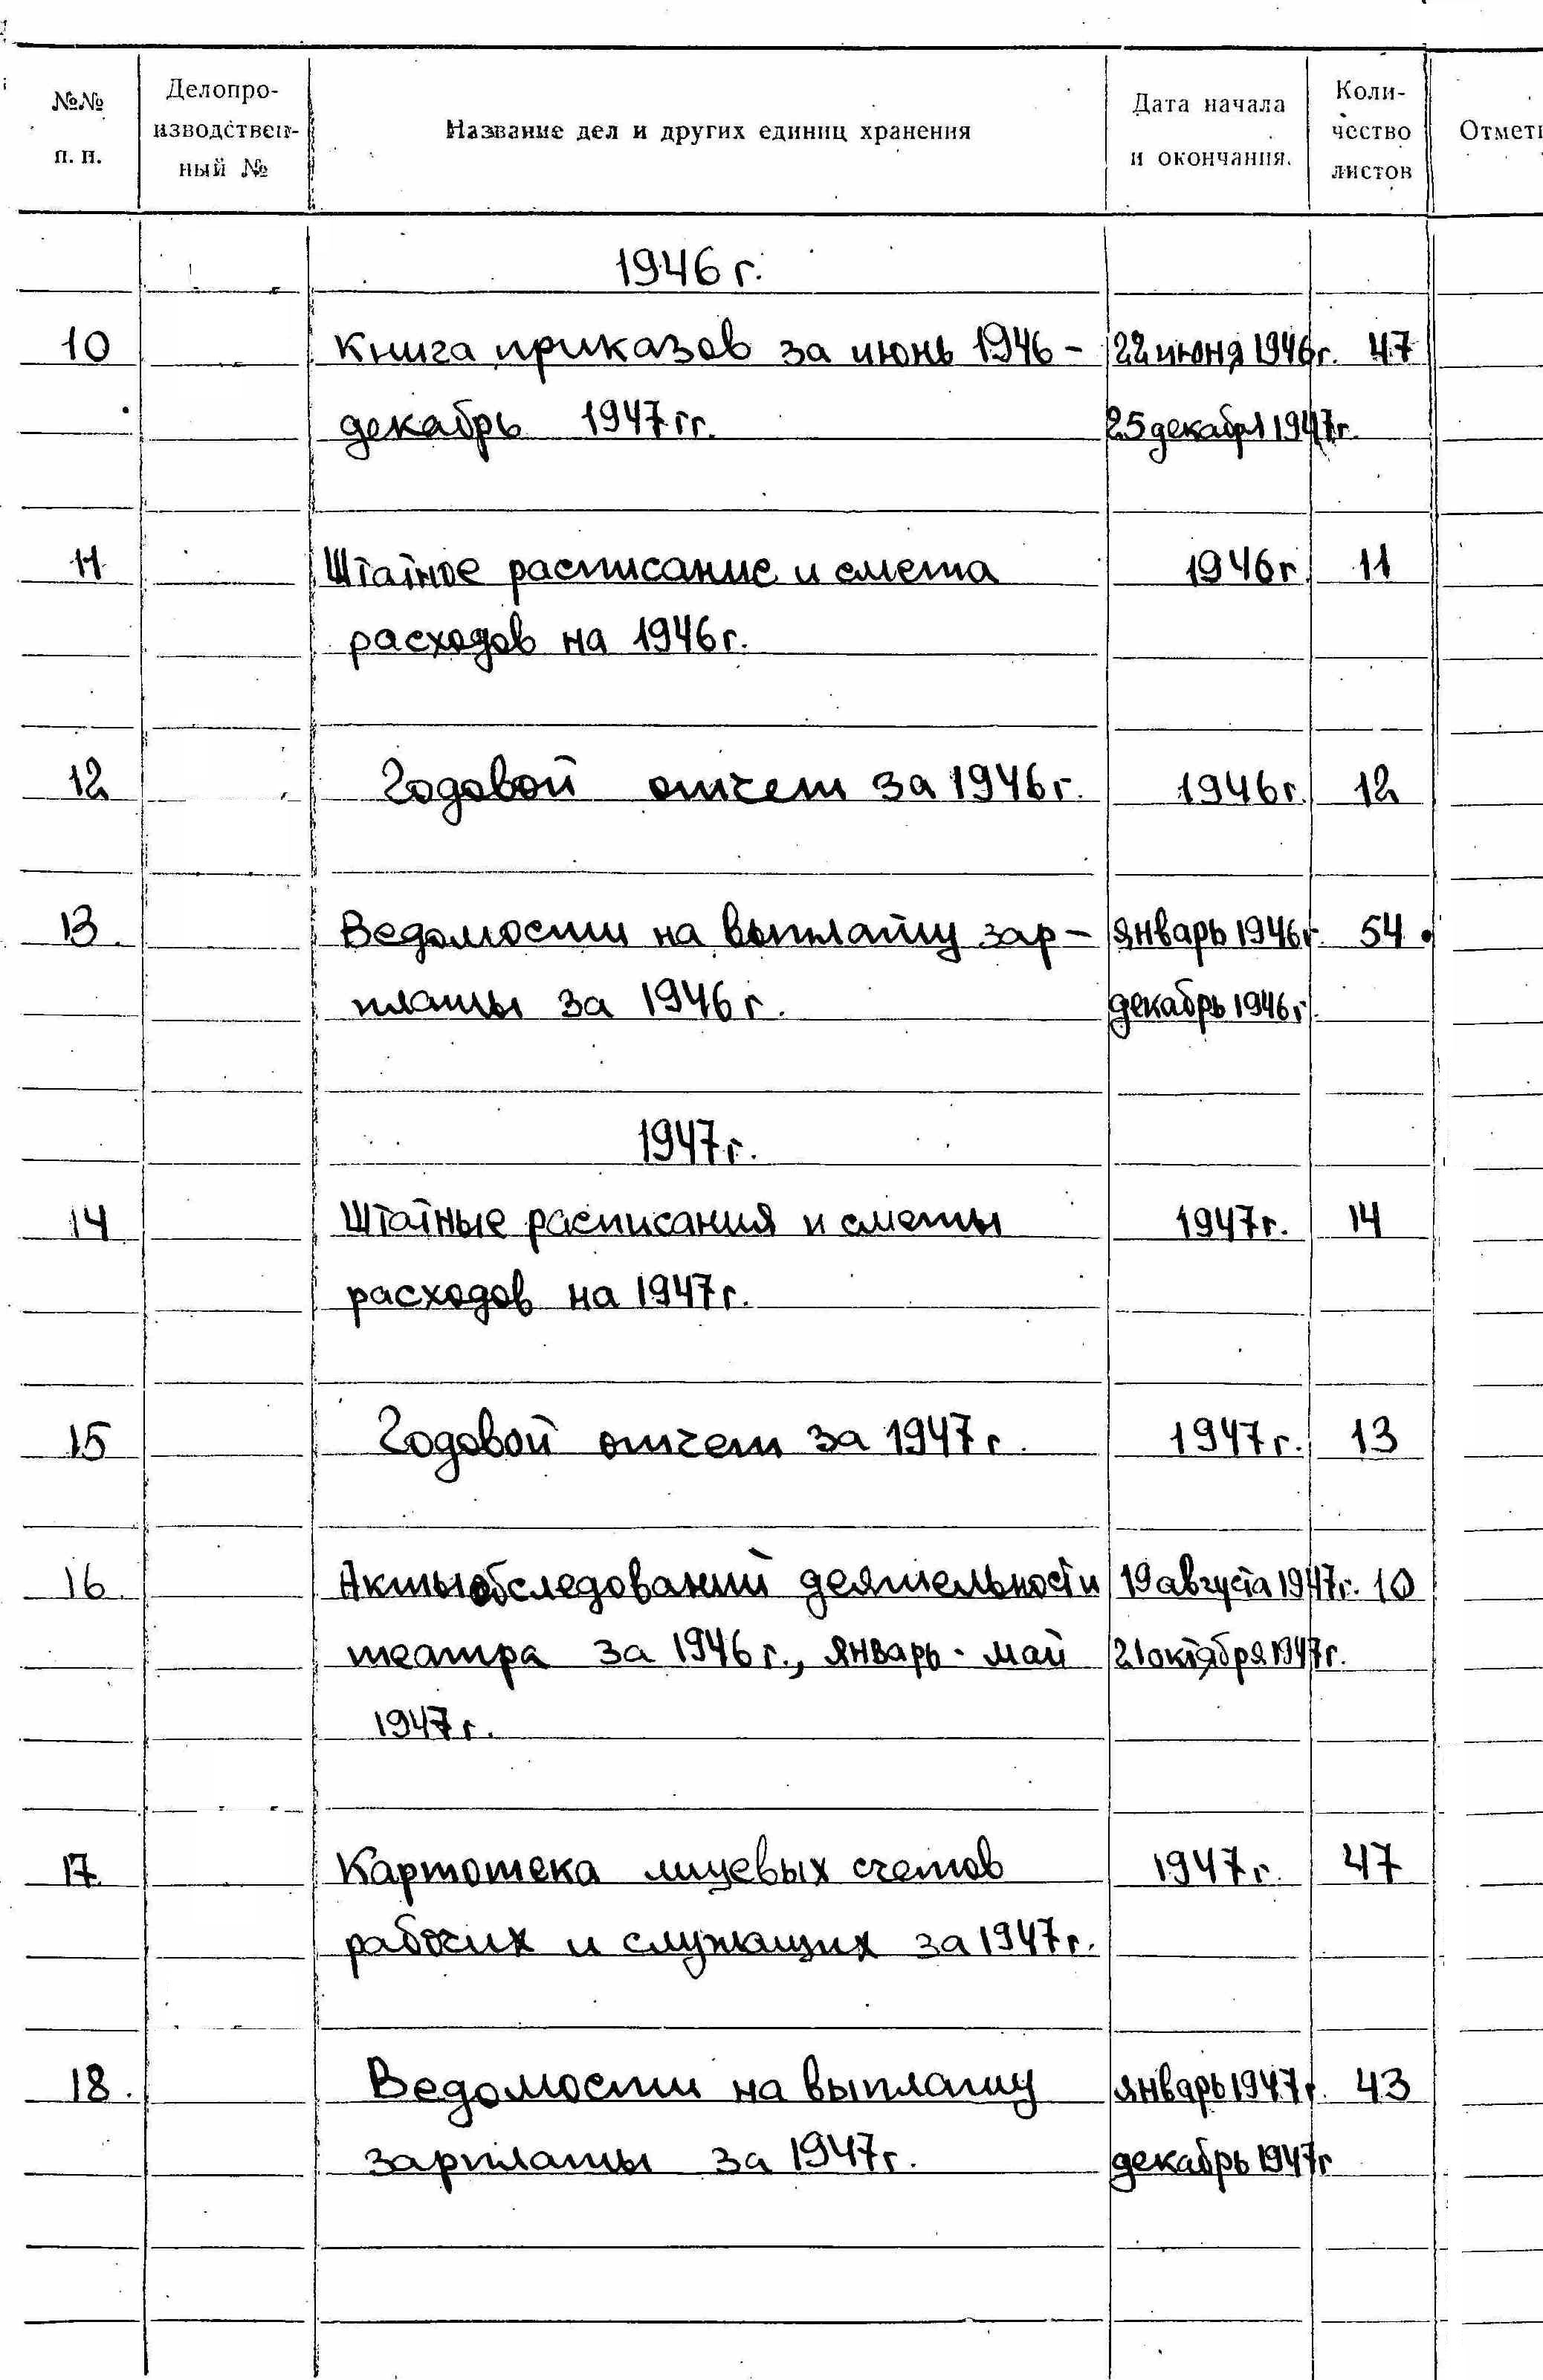 №№ п. п. Делопроизводствен-ный № Название дел и других единиц хранения Дата начала и окончания. Коли-чество листов Отмет
1946 г.
10 Книга приказов за июнь 1946 - 22 июня 1946 г. 47
декабрь 1947 гг. 25 декабря 1947 г.
11 Штатное расписание и смета 1946 г 11
расходов на 1946 г.
12 Годовой отчет за 1946 г. 1946 г. 12
13. Ведомости на выплату зар- январь 1946 г. 54
платы за 1946 г. декабрь 1946 г.
1947 г.
14 Штатные расписания и сметы 1947 г. 14
расходов на 1947 г.
15 Годовой отчет за 1947 г. 1947 г. 13
16. Акты обследований деятельности 19 августа 1947 г. 10
театра за 1946 г., январь - май 21 октября 1947 г.
1947 г.
17. Картотека лицевых счетов 1947 г. 47
рабочих и служащих за 1947 г.
18. Ведомости на выплату январь 1947 г. 43
зарплаты за 1947 г. декабрь 1947 г